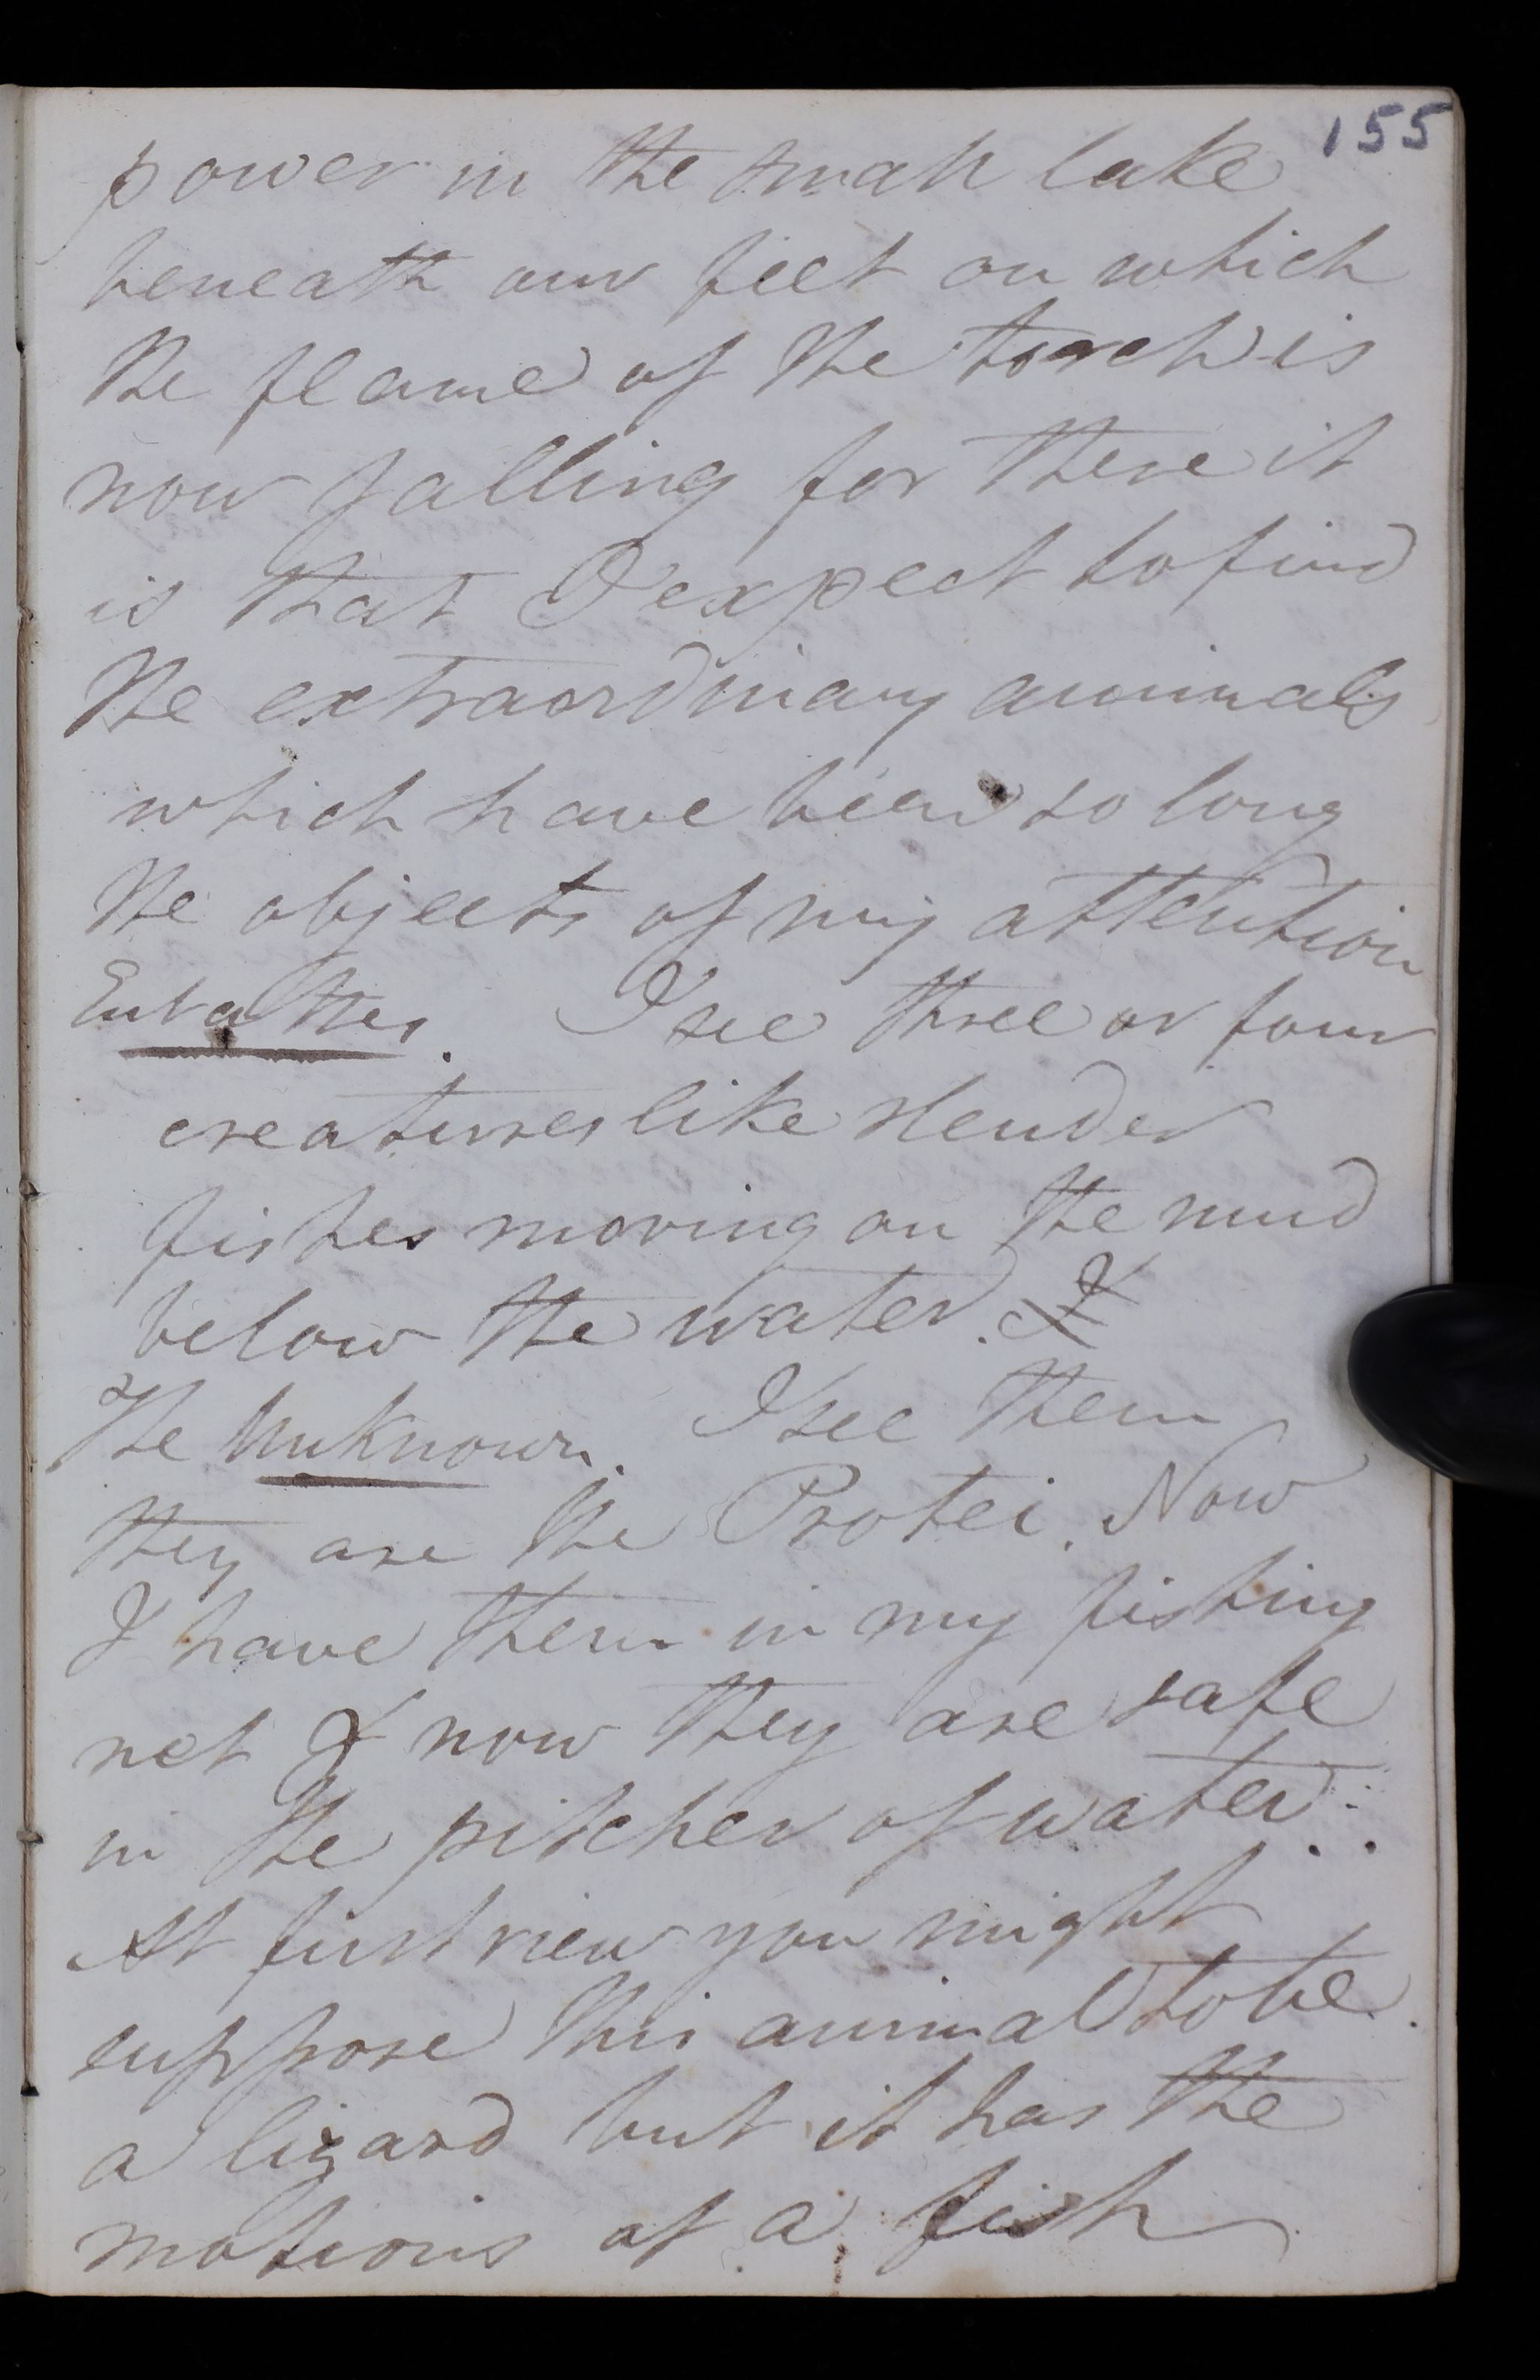 155
power in the small lake
beneath our feet on which
the flame of the torch is
now falling for there it
is that I expect to find
the extraordinary animals
which have been so long
the objects of my attention
Eubathes. I see three or four
creatures like slender
fishes moving on the mud
below the water. I
The Unknown. I see them
they are the Protei. Now
I have them in my fishing
net & now they are safe
in the pitcher of water.
At first view you might
suppose this animal to be
a lizard but it has the
motions of a fish